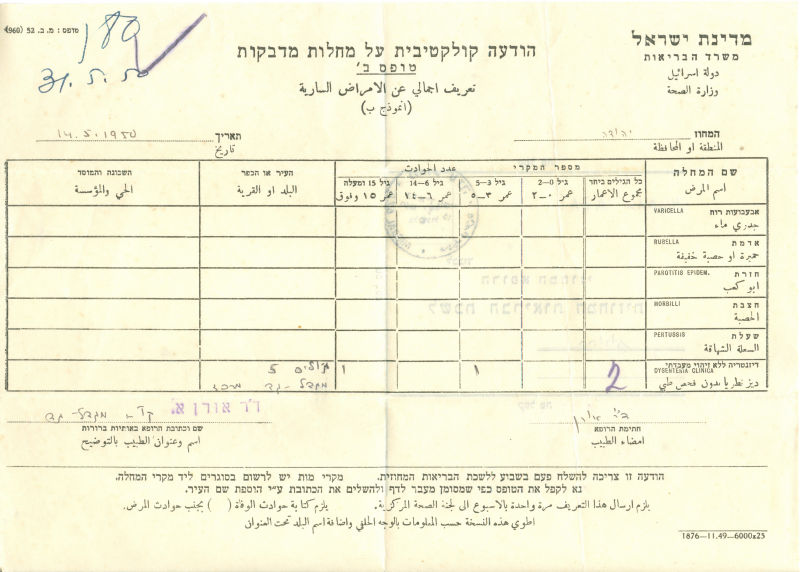 מדינת ישראל
משרד הבריאות
دولة اسرائيل
وزارة الصحة
הודעה קולקטיבית על מחלות מדבקות
טופס ב'
تعريف اجمالي عن الامراض السارية
(نموذج ب)
טופס : מ. ב. 52 (960)
31.5.50
המחוז יהודה
المنطقة او المحافظة
התאריך 14.5.1950
تاريخ
שם המחלה
اسم المرض
מספר המקרי
عدد الحوادث
כל הגילים ביחד
مجموع الاعمار
גיל 2—0
عمر ٠—٢
גיל 5—3
عمر ٣—٥
גיל 14—6
عمر ٦—١٤
גיל 15 ומעלה
عمر ١٥ وفوق
העיר או הכפר
البلد او القرية
השכונה והמוסד
الحي والمؤسسة
VARICELLA אבעבועות רוח
جدري ماء
RUBELLA אדמת
حميرة او حصبة خفيفة
PAROTITIS EPIDEM. חזרת
ابو كعب
MORBILLI חצבת
الحصبة
PERTUSSIS שעלת
السعلة الشهاقة
דיזנטריה ללא זיהוי מעבדתי
DYSENTERIA CLINICA
ديزنطريا بدون فحص طبي
2
1
1
5
מגדל-גד
ד"ר אורן א.
ד"ר אורן
חתימת הרופא
امضاء الطبيب
מגדל-גד
שם וכתובת הרופא באותיות ברורות
اسم وعنوان الطبيب بالتوضيح
הודעה זו צריכה להשלח פעם בשבוע ללשכת הבריאות המחוזית. מקרי מות יש לרשום בסוגרים ליד מקרי המחלה.
נא לקפל את הטופס כפי שמסומן מעבר לדף ולהשלים את הכתובת ע״י הוספת שם העיר.
يلزم ارسال هذا التعريف مرة واحدة بالاسبوع الى لجنة الصحة المركزية. يلزم كتابة حوادث الوفاة ( ) بجنب حوادث المرض.
اطوي هذه النسخة حسب المعلومات بالوجه الخلفي واضافة اسم البلد تحت العنوان
1876—11.49—6000x25